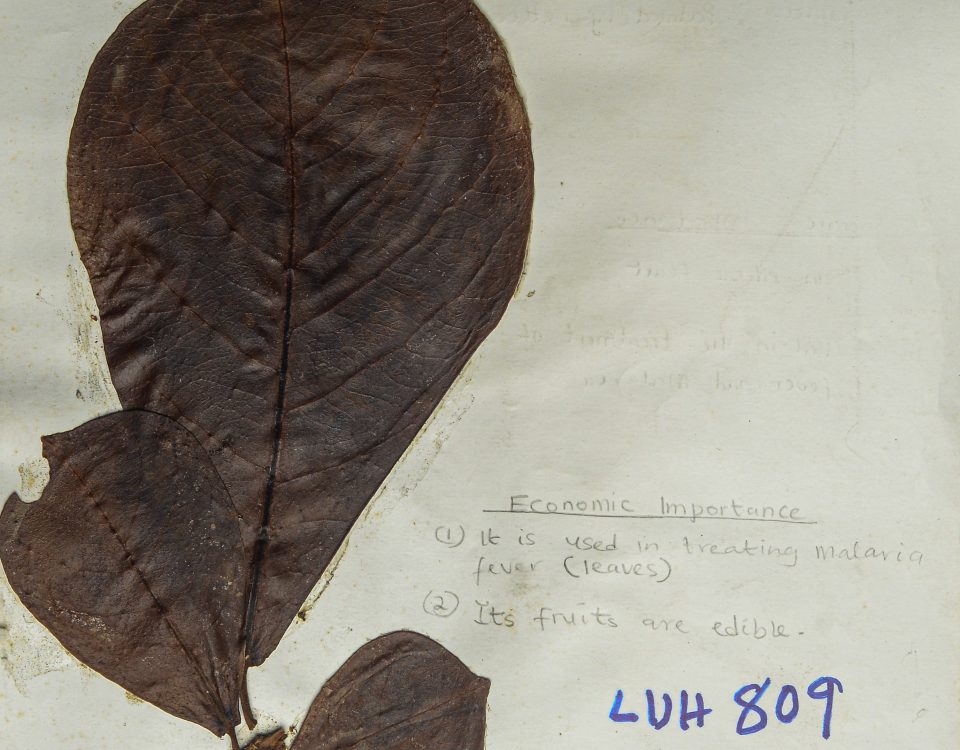 Economic Importance
(1) It is used in treating malaria
fever (leaves)
(2) Its fruits are edible.
LUH 809